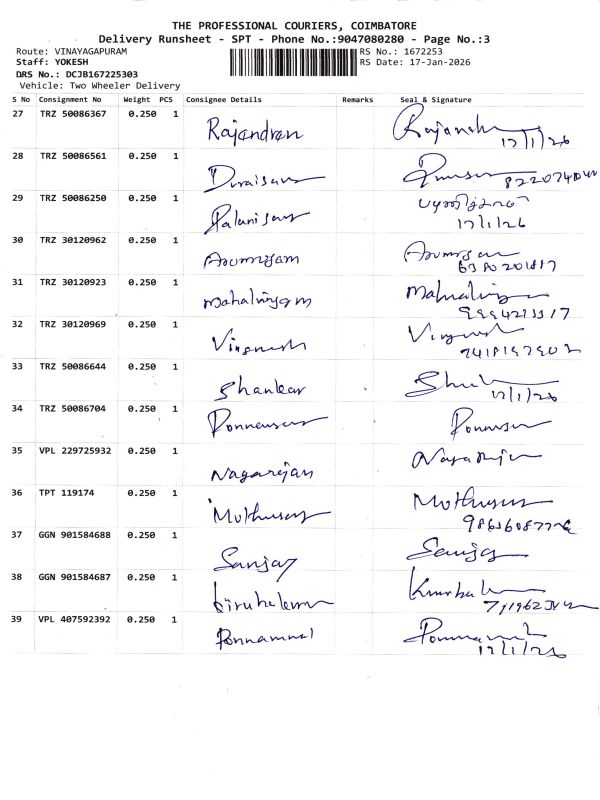 THE PROFESSIONAL COURIERS, COIMBATORE
Delivery Runsheet - SPT - Phone No.:9047080280 - Page No.:3
Route: VINAYAGAPURAM
Staff: YOKESH
DRS No.: DCJB167225303
Vehicle: Two Wheeler Delivery
RS No.: 1672253
RS Date: 17-Jan-2026
S No Consignment No Weight PCS Consignee Details Remarks Seal & Signature
27 TRZ 50086367 0.250 1 Rajandren
17/1/26
28 TRZ 50086561 0.250 1 Duraisamy
29 TRZ 50086250 0.250 1 Palanisamy
17/1/26
30 TRZ 30120962 0.250 1 Arumugam
31 TRZ 30120923 0.250 1 Mahalingam
32 TRZ 30120969 0.250 1 Vignesh
33 TRZ 50086644 0.250 1 Shankar
17/1/26
34 TRZ 50086704 0.250 1 Ponnusamy
35 VPL 229725932 0.250 1 Nagarajan
36 TPT 119174 0.250 1 Muthusamy
37 GGN 901584688 0.250 1 Sanjay Sanjay
38 GGN 901584687 0.250 1
39 VPL 407592392 0.250 1 Ponnammal
17/1/26